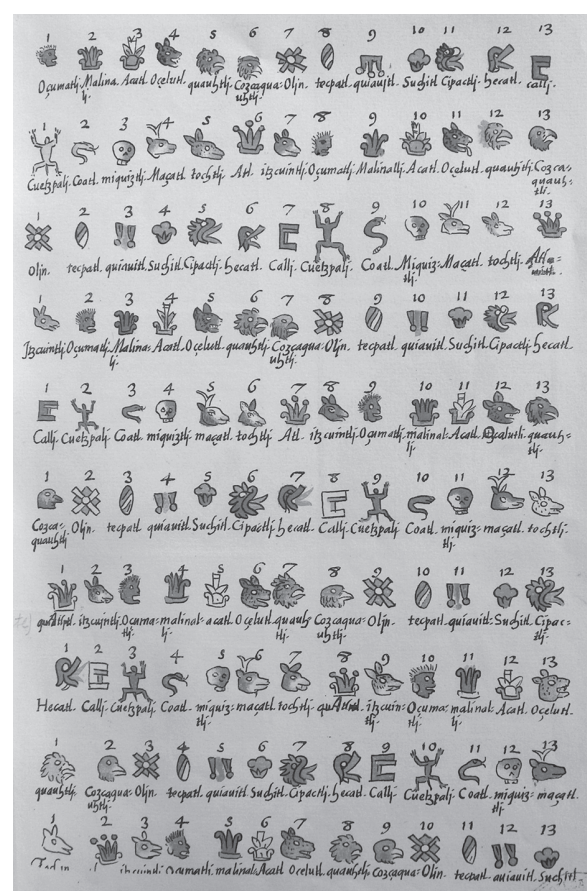 1 2 3 4 5 6 7 8 9 10 11 12 13
Oçumatlj. Malina- Acatl. Oçelutl. quauhtlj. Cozcaqua- Olin. tecpatl. quiauitl. Suchitl Cipactlj. hecatl. callj.
lj. uhtlj.
1 2 3 4 5 6 7 8 9 10 11 12 13
Cuetzpalj. Coatl. miquiztlj. Maçatl. tochtlj. Atl. itzcuintlj Oçumatlj. Malinallj. Acatl. Oçelutl. quauhtlj. Cozca=
quauh=
tlj.
1 2 3 4 5 6 7 8 9 10 11 12 13
Olin. tecpatl. quiauitl. Suchitl. Cipactlj. hecatl. Callj. Cuetzpalj. Coatl. Miquiz= Maçatl. tochtlj.
tlj.
1 2 3 4 5 6 7 8 9 10 11 12 13
Jtzcuintlj. Oçumatlj. Malina= Acatl. Oçelutl. quauhtlj. Cozcaqua= Olin. tecpatl. quiauitl. Suchitl. Cipactlj. hecatl.
lj. uhtlj.
1 2 3 4 5 6 7 8 9 10 11 12 13
Callj. Cuetzpalj. Coatl. miquiztlj. maçatl. tochtlj. Atl. itzcuintlj. Oçumatlj. malinal= Acatl. Oçelutl. quauh=
lj. tlj.
1 2 3 4 5 6 7 8 9 10 11 12 13
Cozca= Olin. tecpatl. quiauitl. Suchitl. Cipactlj. hecatl. Callj. Cuetzpalj. Coatl. miquiz= maçatl. tochtlj.
quauhtlj. tlj.
1 2 3 4 5 6 7 8 9 10 11 12 13
itzcuintlj. Oçuma= malinal= acatl. Oçelutl. quauh= Cozcaqua= Olin. tecpatl. quiauitl. Suchitl. Cipac=
tlj. lj. tlj. uhtlj. tlj.
1 2 3 4 5 6 7 8 9 10 11 12 13
Hecatl. Callj. Cuetzpalj. Coatl. miquiz= maçatl. tochtlj. itzcuin= Oçuma= malinal= Acatl. Oçelutl.
tlj. tlj. tlj. lj.
1 2 3 4 5 6 7 8 9 10 11 12 13
quauhtlj. Cozcaqua= Olin. tecpatl. quiauitl. Suchitl. Cipactlj. hecatl. Callj. Cuetzpalj. Coatl. miquiz= maçatl.
uhtlj. tlj.
1 2 3 4 5 6 7 8 9 10 11 12 13
Oçumatlj. malinal. Acatl. Oçelutl. quauhtlj. Cozcaqua= Olin. tecpatl. quiauitl. Suchitl.